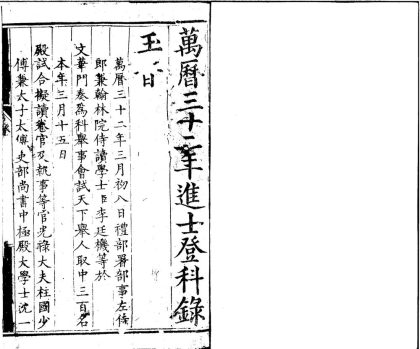 萬曆三十二年進士登科錄
玉音
萬曆三十二年三月初八日禮部署部事左侍
郎兼翰林院侍讀學士臣李廷機等於
文華門奏爲科舉事會試天下舉人取中三百名
本年三月十五日
殿試合擬讀卷官及執事等官光祿大夫柱國少
傅兼太子太傅吏部尚書中極殿大學士沈一